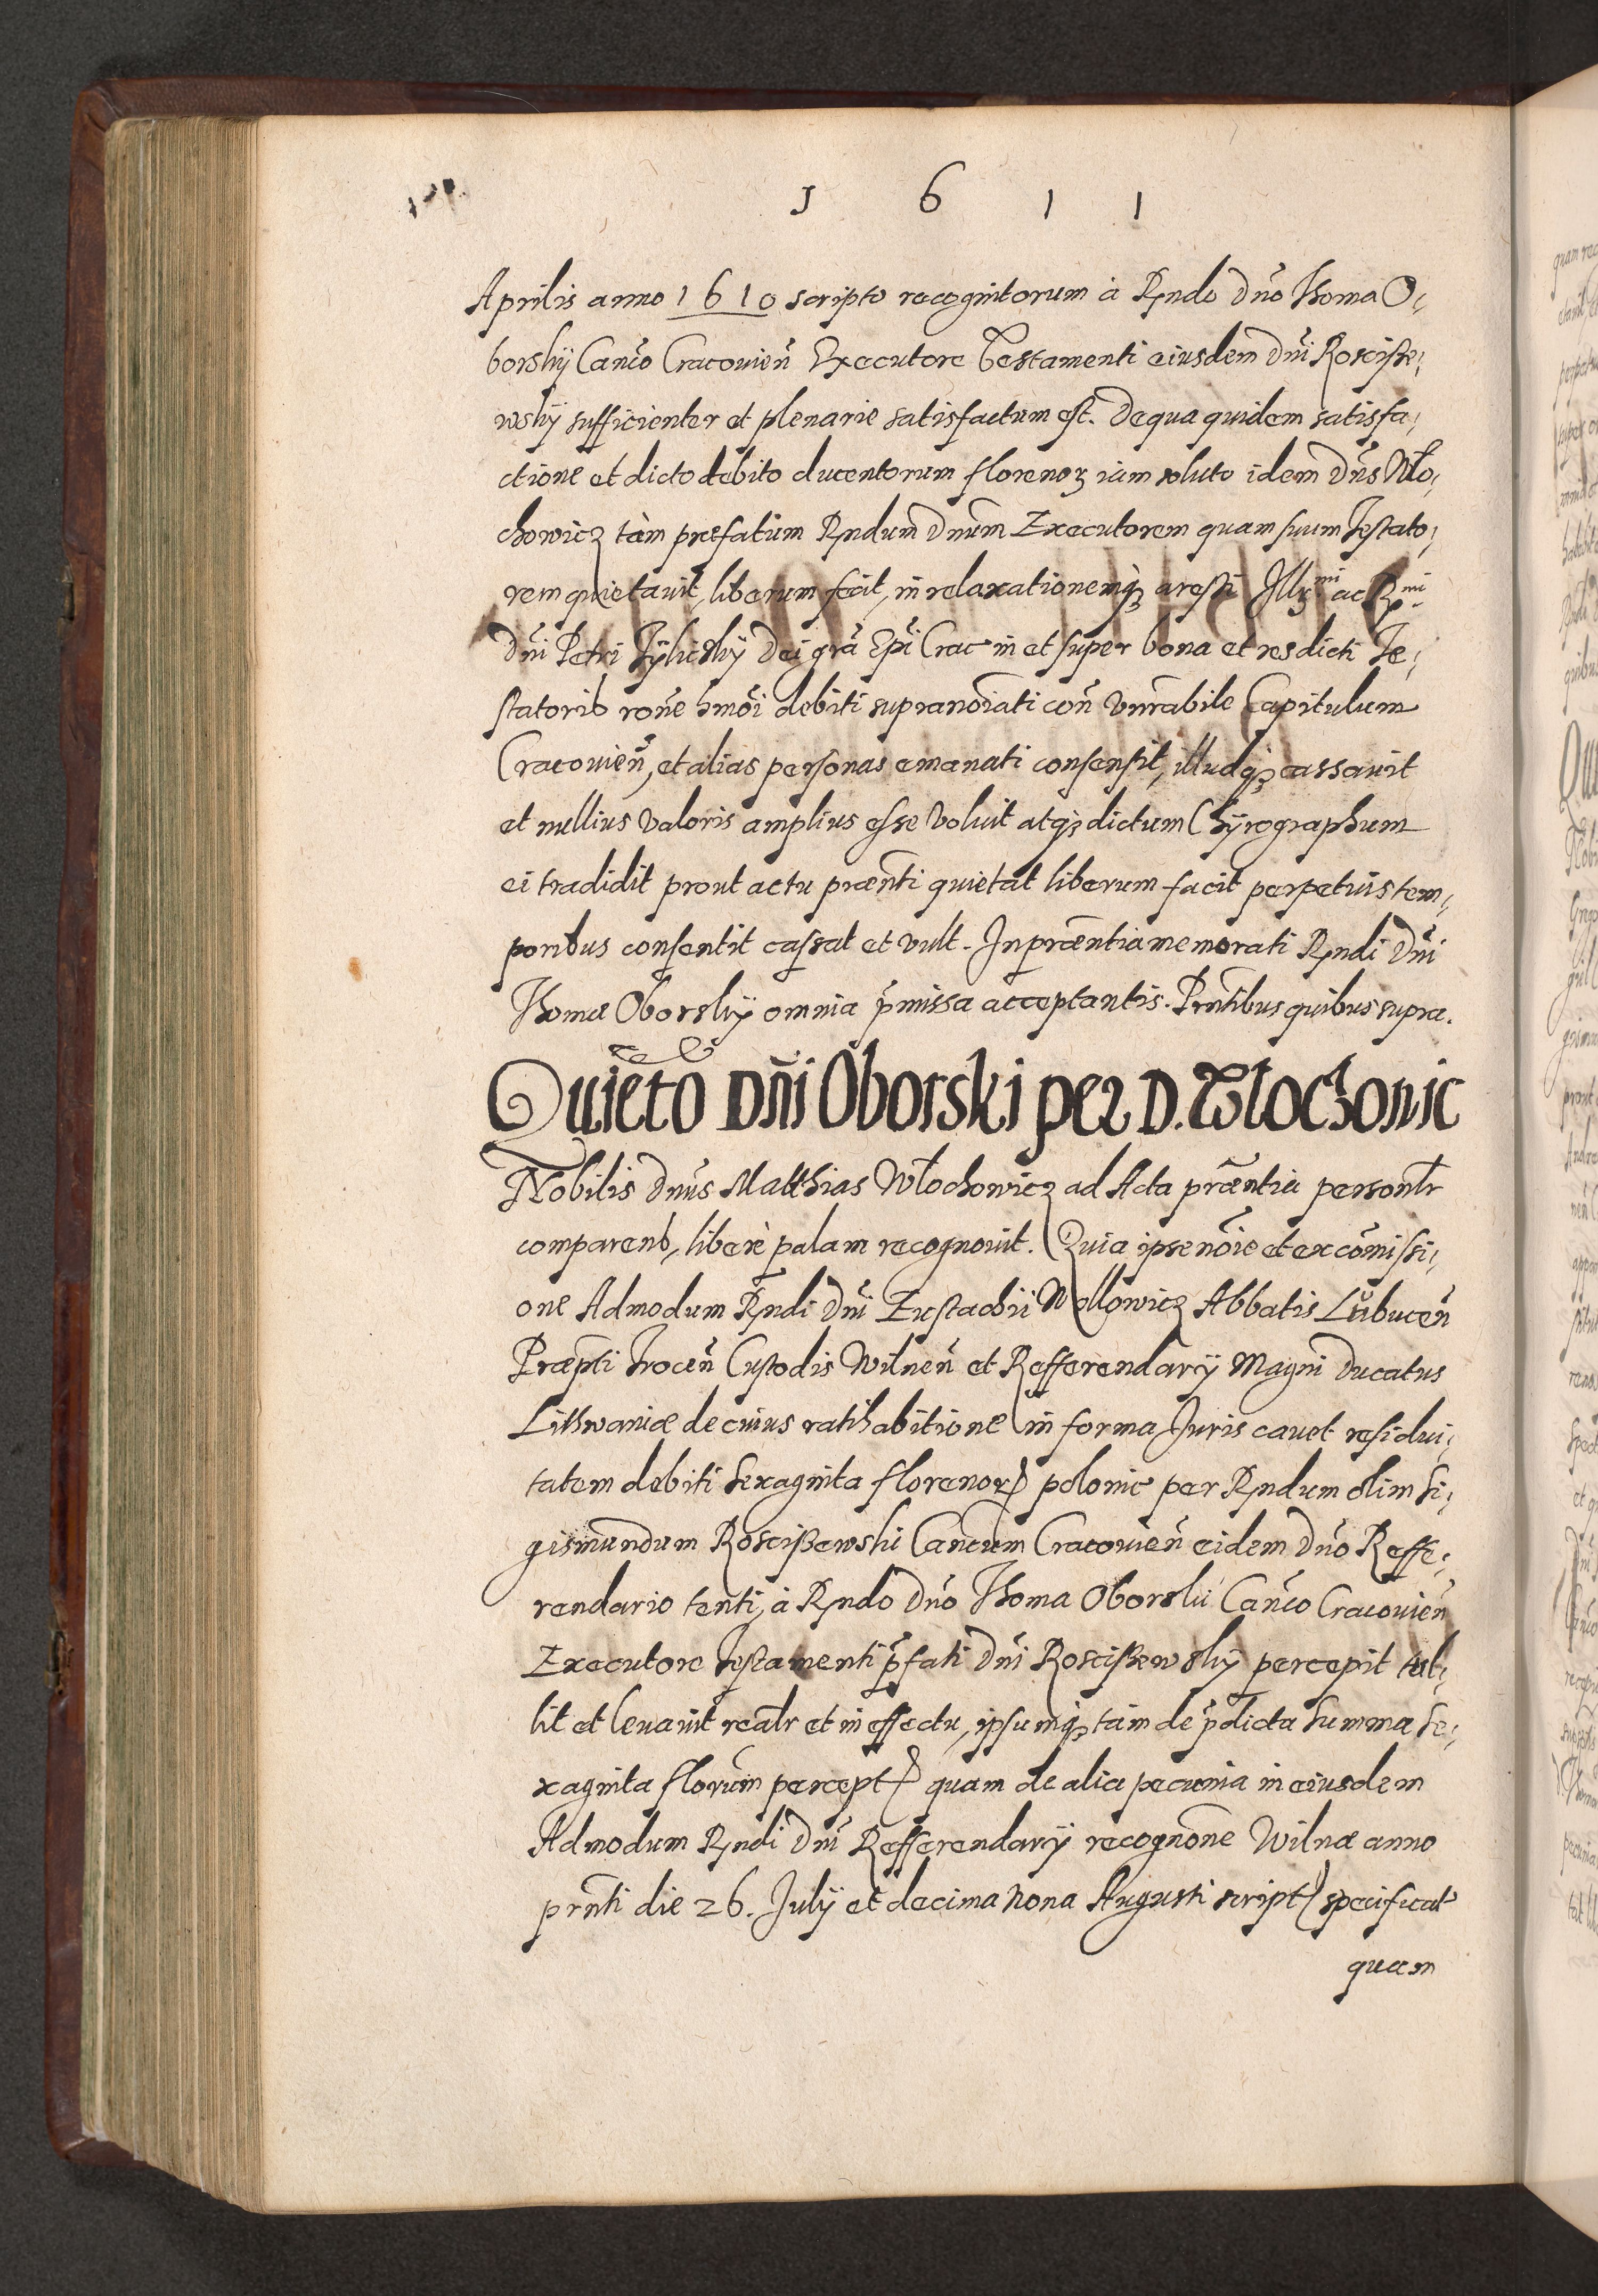 1 6 1 1
Aprilis anno 1610 scripto recognitorum à Rndo Dno Thoma O,
borskij Canco Cracouien Executore Testamenti eiusdem Dni Rosciße,
wskij sufficienter et plenarie satisfactum est. De qua quidem satisfa,
ctione et dicto debito ducentorum florenoꝝ iam soluto idem Dns Wło,
chowicz tàm præfatum Rndum Dnum Executorem quam suum Testato,
rem quietauit, liberum fecit, in relaxationemqꝫ aresti Illꝫmi ac Rmi
Dni Petri Tÿlickÿ Dei gra Epi Crac in et super bona et res dicti Te,
statoris rone hmoi debiti supranoiati con Vnrabile Capitulum
Cracouien, et alias personas emanati consensit, illudqꝫ cassauit
et nullius valoris amplius esse voluit atqꝫ dictum Chÿrographum
ei tradidit prout actu præenti quietat liberum facit perpetuis tem,
poribus consentit cassat et vult. In præentia memorati Rndi Dni
Thomæ Oborskÿ omnia pmissa acceptantis. Prntibus quibus supra.
Quieto Dni Oborski per D. Włochowic
Nobilis Dnus Matthias Włochowicz ad Acta præntia personlr
comparens, liberè palam recognouit. Quia ipse noie et ex comissi,
one Admodum Rndi Dni Eustachii Wollowicz Abbatis Lubucen
Præpti Trocen Custodis Wilnen et Refferendarÿ Magni Ducatus
Lithwaniæ de cuius ratihabitione in forma Juris cauet residui,
tatem debiti sexaginta florenoꝝ polonic per Rndum olim Si,
gismundum Roscißewski Cancum Cracouien eidem Dno Reffe,
rendario tenti, à Rndo Dno Thoma Oborski Canco Cracouien
Executore Testamenti pfati Dni Roscißewskÿ percepit tul,
lit et leuauit realr et in effectu, ipsumqꝫ tàm de pdicta summa se,
xaginta florum percept quam de alia pecunia in eiusdem
Admodum Rndi Dni Refferendarÿ recognone Wilnæ anno
prnti die 26. Julÿ et decima nona Augusti script specificat
quam